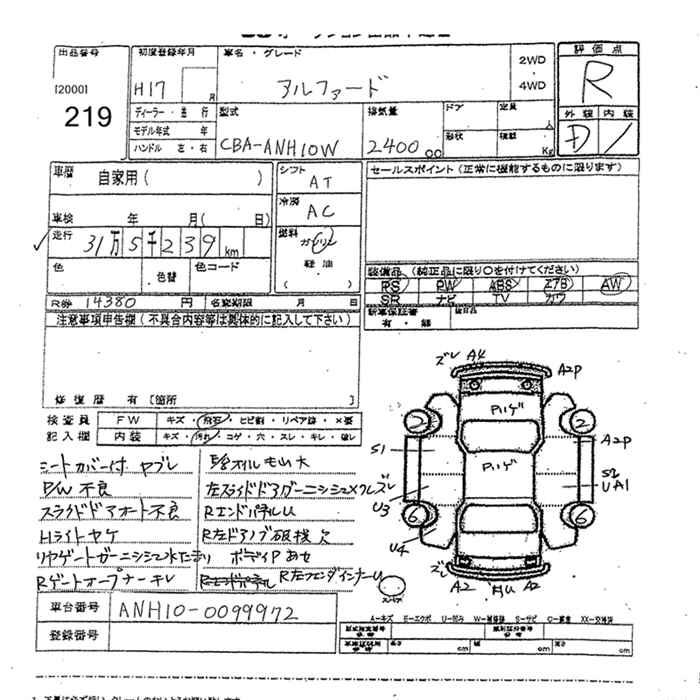 出品番号
[2000]
219
初度登録年月
H17
月
車名・グレード
アルファード
2WD
・
4WD
評価点
R
外装 内装
D /
ディーラー・並行
モデル年式 年
ハンドル 左・右
型式
CBA-ANH10W
排気量
2400 cc
ドア
定員
人
形状
積載
Kg
車歴
自家用( )
車検 年 月( 日)
走行
31万5千239 km
色
色替
色コード
シフト
AT
冷房
AC
燃料
ガソリン
軽油
( )
セールスポイント(正常に機能するものに限ります)
装備品(純正品に限り○を付けてください)
PS PW ABS エアB AW
SR ナビ TV カワ
有・無
R券 14380 円
名変期限 月 日
注意事項申告欄(不具合内容等は具体的に記入して下さい)
修復歴 有 [箇所 ]
検査員
記入欄
FW キズ・飛石・ヒビ割・リペア跡・×要
内装 キズ・汚れ・コゲ・穴・スレ・キレ・破レ
シートカバー付 ヤブレ
P/W 不良
スライドドアオート不良
Hライトヤケ
リヤゲートガーニッシュ水たまり
Rゲートオープナーキレ
左スライドドアガーニッシュ×クレズレ
RエンドパネルU
R左ドアノブ破損欠
ボディP あせ
R左フェンダインナーU
ズレ A4
A2P
Pハゲ
2
2
A2P
S1
Pハゲ
S2
UA1
ズレ
U3
6
6
U4
ズレ
A2
A2
スペア
車台番号
ANH10-0099972
登録番号
A―キズ E―エクボ U―凹み W―補修跡 S―サビ C―腐食 XX―交換済
長さ cm
深さ cm